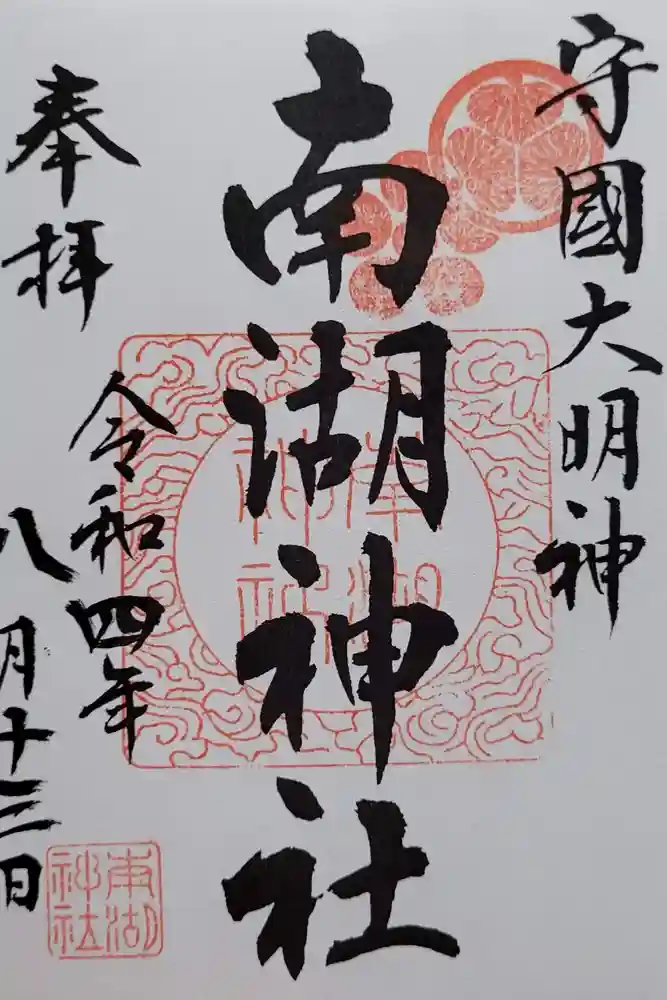 守國大明神
南湖神社
奉拝
令和四年
八月十三日
南湖神社
南湖神社